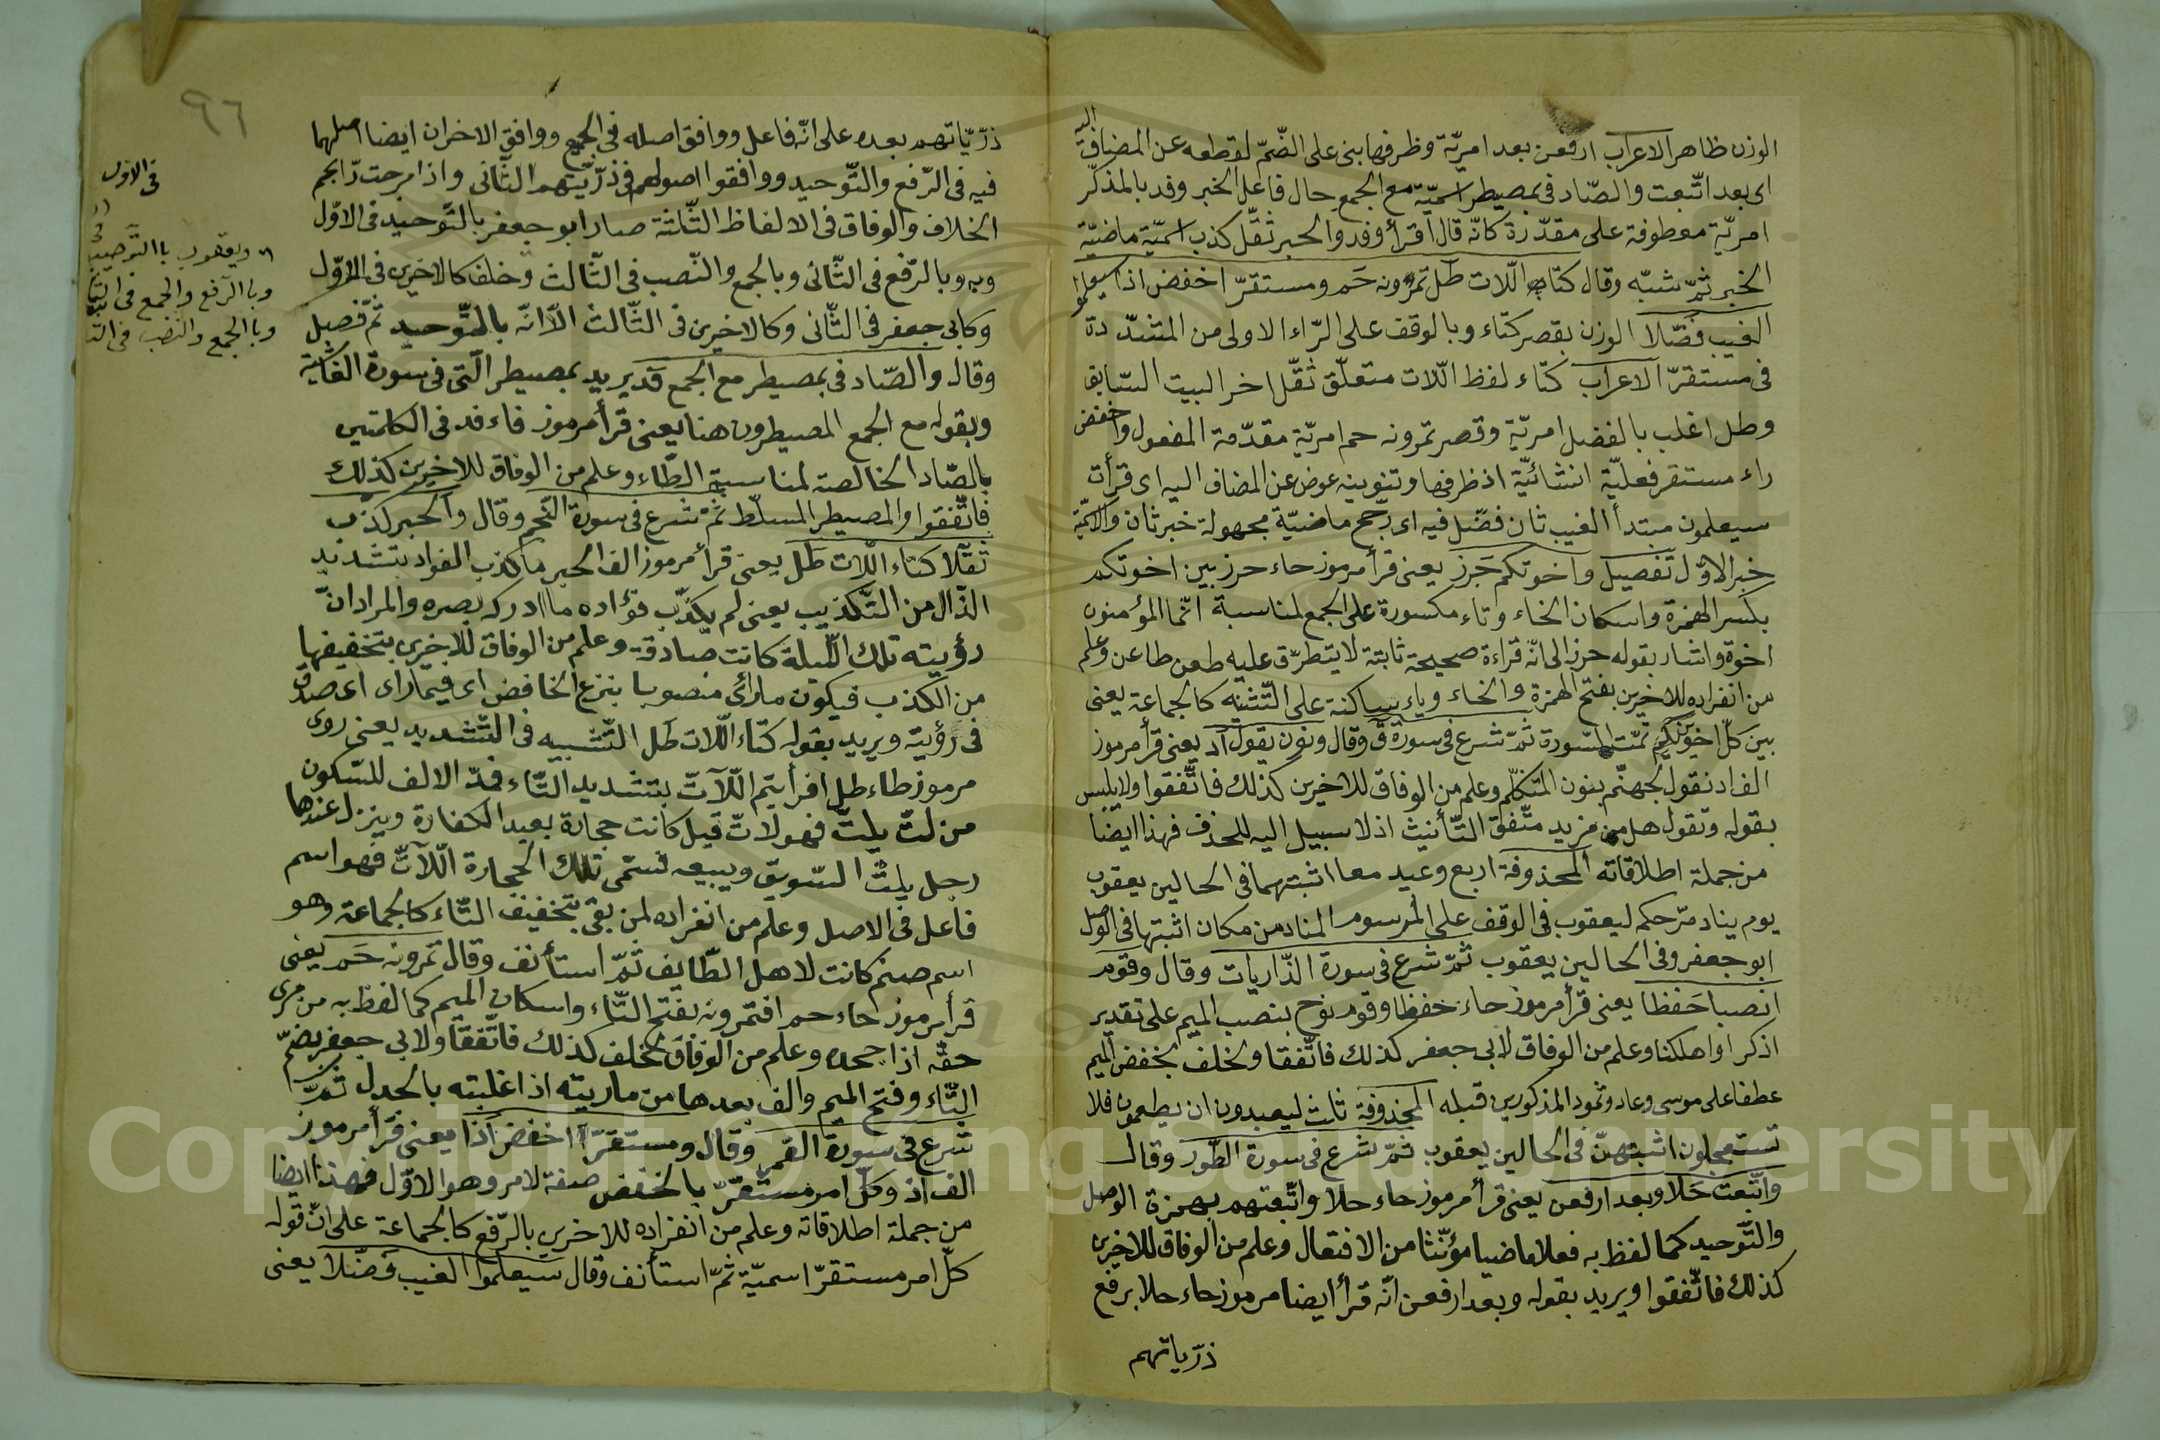 الوزن ظاهر الاعراب ارفعن بعد امريّة وظرفها بنى على الضّمّ لقطعه عن المضاف اليه
اى بعد اتّبعت والصّاد فى بمصيطر اسميّة مع الجمع حال فاعل الخبر وفد بالمذكّر
امريّة معطوفة على مقدّرة كانّه قال اقرأ وفد والحبر ثقّل كذب اسميّة ماضيّة
الخبر ثمّ شبّه وقال كتاء اللّات طل تمرونه حم ومستقرّ اخفض اذا سيعلموا
الغيب فضّلا الوزن بقصر كتاء وبالوقف على الرّاء الاولى من المشدّدة
فى مستقرّ الاعراب كتاء لفظ اللّات متعلّق ثقّل اخر البيت السّابق
وطل اغلب بالفضل امريّة وقصر تمرونه حم امريّة مقدّمة المفعول واخفض
راء مستقر فعليّة انشائيّة اذ ظرفها وتنوينه عوض عن المضاف اليه اى قرأت
سيعلمون مبتدأ الغيب ثان فضّل فيه اى رجّح ماضيّة مجهولة خبر ثان والاسميّة
خبر الاوّل تفصيل واخوتكم حرز يعنى قرأ مرموز حاء حرز بين اخوتكم
بكسر الهمزة واسكان الخاء وتاء مكسورة على الجمع لمناسبة انّما المؤمنون
اخوة واشار بقوله حرز الى انّه قراءة صحيحة ثابتة لا يتطرّق عليه طعن طاعن وعلم
من انفراده للاخرين بفتح الهمزة والخاء وياء ساكنة على التّثنيه كالجماعة يعنى
بين كلّ اخوينكم تمّت السّورة ثمّ شرع فى سورة ق وقال ونون يقول اد يعنى قرأ مرموز
الف اد نقول لجهنّم بنون المتكلّم وعلم من الوفاق للاخرين كذلك فاتّفقوا ولا يلبس
بقوله وتقول هل من مزيد متّفق التّأنيث اذ لا سبيل اليه للحذف فهذا ايضا
من جملة اطلاقاته المحذوفة اربع وعيد معا اثبتهما فى الحالين يعقوب
يوم يناد مرّ حكمه ليعقوب فى الوقف على المرسوم المناد من مكان اثبتها فى الوصل
ابو جعفر وفى الحالين يعقوب ثمّ شرع فى سورة الذّاريات وقال وقوم
انصبا حفظا يعنى قرأ مرموز حاء حفظا وقوم نوح بنصب الميم على تقدير
اذكر او اهلكنا وعلم من الوفاق لابى جعفر كذلك فاتّفقا ولخلف بخفض الميم
عطفا على موسى وعاد وثمود المذكورين قبله المحذوفة ثلث ليعبدون ان يطعمون فلا
تستعجلون اثبتهنّ فى الحالين يعقوب ثمّ شرع فى سورة الطّور وقال
واتّبعت حلا وبعد ارفعن يعنى قرأ مرموز حاء حلا واتّبعتهم بهمزة الوصل
والتّوحيد كما لفظ به فعلا ماضيا مؤنّثا من الافتعال وعلم من الوفاق للاخرين
كذلك فاتّفقوا ويريد بقوله وبعد ارفعن انّه قرأ ايضا مرموز حاء حلا برفع
ذرّياتهم
٩٦
ذرّيّاتهم بعده على انّه فاعل ووافق اصله فى الجمع ووافق الاخران ايضا اصلهما
فيه فى الرّفع والتّوحيد ووافقوا اصولهم فى ذرّيّتهم الثّانى واذا مرجت تراجم
الخلاف والوفاق فى الالفاظ الثّلثة صار ابو جعفر بالتّوحيد فى الاوّل
وبه وبالرّفع فى الثّانى وبالجمع والنّصب فى الثّالث وخلف كالاخرين فى الاوّل
وكابى جعفر فى الثّانى وكالاخرين فى الثّالث الّا انّه بالتّوحيد ثمّ فصل
وقال والصّاد فى بمصيطر مع الجمع فد يريد بمصيطر الّتى فى سورة الغاشية
وبقوله مع الجمع المصيطرون هنا يعنى قرأ مرموز فاء فد فى الكلمتين
بالصّاد الخالصة لمناسبة الطّاء وعلم من الوفاق للاخرين كذلك
فاتّفقوا والمصيطر المسلّط ثمّ شرع فى سورة النّجم وقال والحبر كذب
ثقّلا كتاء اللّات طل يعنى قرأ مرموز الف الحبر ما كذب الفواد بتشديد
الذّال من التّكذيب يعنى لم يكذّب فؤاده ما ادركه بصره والمراد انّ
رؤيته تلك اللّيلة كانت صادقة وعلم من الوفاق للاخرين بتخفيفها
من الكذب فيكون ما رأى منصوبا بنزع الخافض اى فيما راى اى صدق
فى رؤيته ويريد بقوله كتاء اللّات طل التّشبيه فى التّشديد يعنى روى
مرموز طاء طل افرأيتم اللّآتّ بتشديد التّاء فمدّ الالف للسّكون
من لتّ يلتّ فهو لاتّ قيل كانت حجارة بعيد الكفارة وينزل عندها
رجل يلتّ السّويق ويبيعه فسمّى تلك الحجارة اللّآتّ فهو اسم
فاعل فى الاصل وعلم من انفراده لمن بقى بتخفيف التّاء كالجماعة وهو
اسم صنم كانت لاهل الطّايف ثمّ استأنف وقال تمرونه حم يعنى
قرأ مرموز حاء حم افتمرونه بفتح التّاء واسكان الميم كما لفظ به من مرى
حقّه اذا جحده وعلم من الوفاق لخلف كذلك فاتّفقا ولابى جعفر بضمّ
التّاء وفتح الميم والف بعدها من ماريته اذا غلبته بالجدل ثمّ
شرع فى سورة القمر وقال ومستقرّ اخفض اذا يعنى قرأ مرموز
الف اذ وكلّ امر مستقرّ بالخفض صفة لامر وهو الاوّل فهذا ايضا
من جملة اطلاقاته وعلم من انفراده للاخرين بالرّفع كالجماعة على انّ قوله
كلّ امر مستقرّ اسميّة ثمّ استأنف وقال سيعلموا الغيب فضّلا يعنى
فى الاول
ويعقوب باالتّوحيد
وباالرّفع والجمع فى
وباالجمع والنّصب فى
Copyright © King Saud University